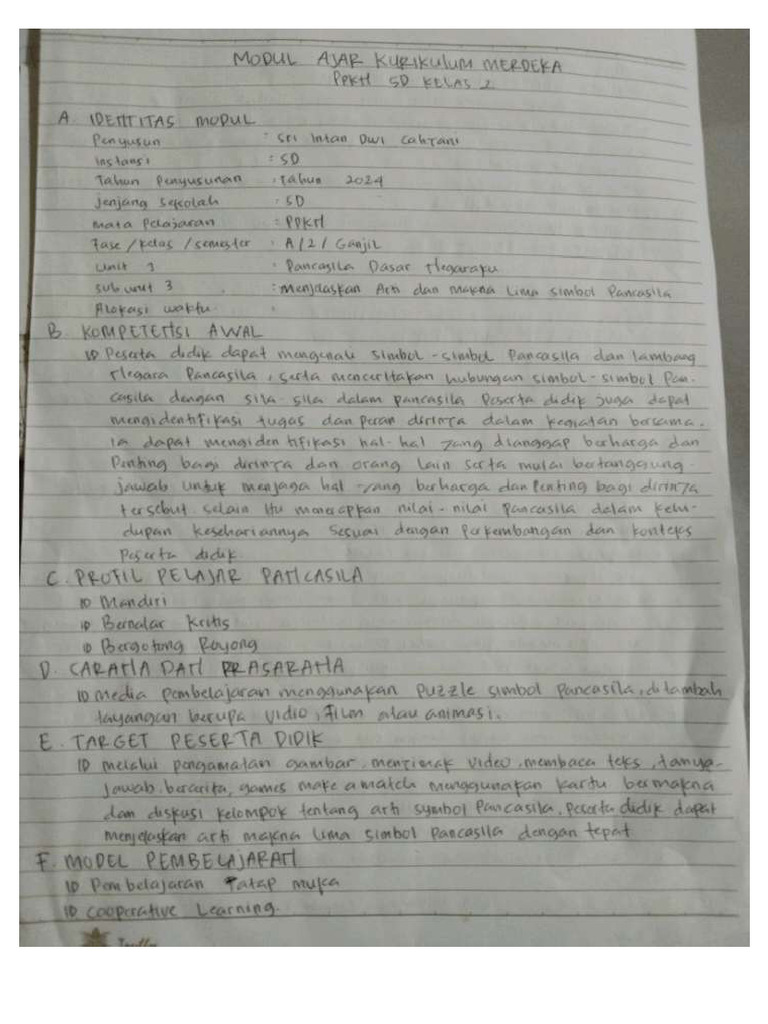 MODUL AJAR KURIKULUM MERDEKA
PPKN SD KELAS 2
A. IDENTITAS MODUL
Penyusun : Sri Intan Dwi Cahyani
Instansi : SD
Tahun Penyusunan : Tahun 2024
Jenjang Sekolah : SD
Mata Pelajaran : PPKN
Fase / Kelas / semester : A / 2 / Ganjil
Unit 1 : Pancasila Dasar Negaraku
Sub unit 3 : Menjelaskan Arti dan Makna Lima Simbol Pancasila
Alokasi waktu :
B. KOMPETENSI AWAL
Peserta didik dapat mengenali simbol-simbol Pancasila dan lambang
Negara Pancasila, serta menceritakan hubungan simbol-simbol Pan-
casila dengan sila-sila dalam pancasila Peserta didik juga dapat
mengidentifikasi tugas dan peran dirinya dalam kegiatan bersama.
Ia dapat mengidentifikasi hal-hal yang dianggap berharga dan
Penting bagi dirinya dan orang lain serta mulai bertanggung-
jawab untuk menjaga hal yang berharga dan Penting bagi dirinya
tersebut selain itu menerapkan nilai-nilai Pancasila dalam kehi-
dupan kesehariannya sesuai dengan Perkembangan dan konteks
Peserta didik
C. PROFIL PELAJAR PANCASILA
Mandiri
Bernalar Kritis
Bergotong Royong
D. CARANA DAN PRASARANA
Media pembelajaran menggunakan Puzzle simbol Pancasila, ditambah
tayangan berupa vidio, Film atau animasi.
E. TARGET PESERTA DIDIK
melalui pengamatan gambar, menyimak video, membaca teks, tanya-
jawab, bercerita, games make a match menggunakan kartu bermakna
dan diskusi kelompok tentang arti symbol Pancasila, Peserta didik dapat
menjelaskan arti makna lima simbol Pancasila dengan tepat
F. MODEL PEMBELAJARAN
Pembelajaran Tatap muka
Cooperative Learning.